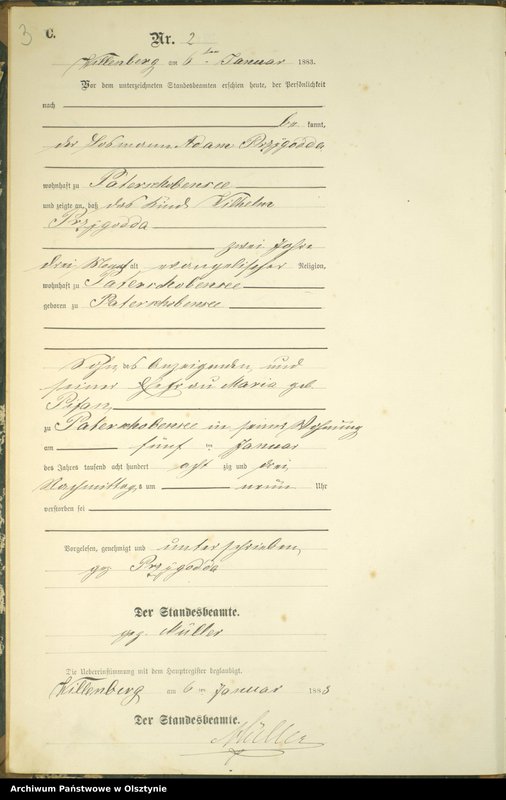 3
C.
Nr. 2
Willenberg am 6ten Januar 1883.
Vor dem unterzeichneten Standesbeamten erschien heute, der Persönlichkeit
nach
be kannt,
der Losmann Adam Przygodda
wohnhaft zu Paterschobensee
und zeigte an, daß das Kind Wilhelm
Przygodda
zwei Jahre
drei Monat alt evangelischer Religion,
wohnhaft zu Paterschobensee
geboren zu Paterschobensee
Sohn des Anzeigenden und
seiner Ehefrau Maria geb.
zu Paterschobensee in seiner Wohnung
am fünf ten Januar
des Jahres tausend acht hundert acht zig und drei
Nachmittags um neun Uhr
verstorben sei
Vorgelesen, genehmigt und unterschrieben
gez Przygodda
Der Standesbeamte.
gez. Müller
Die Uebereinstimmung mit dem Hauptregister beglaubigt.
Willenberg am 6ten Januar 1883
Der Standesbeamte.
Müller
Archiwum Państwowe w Olsztynie